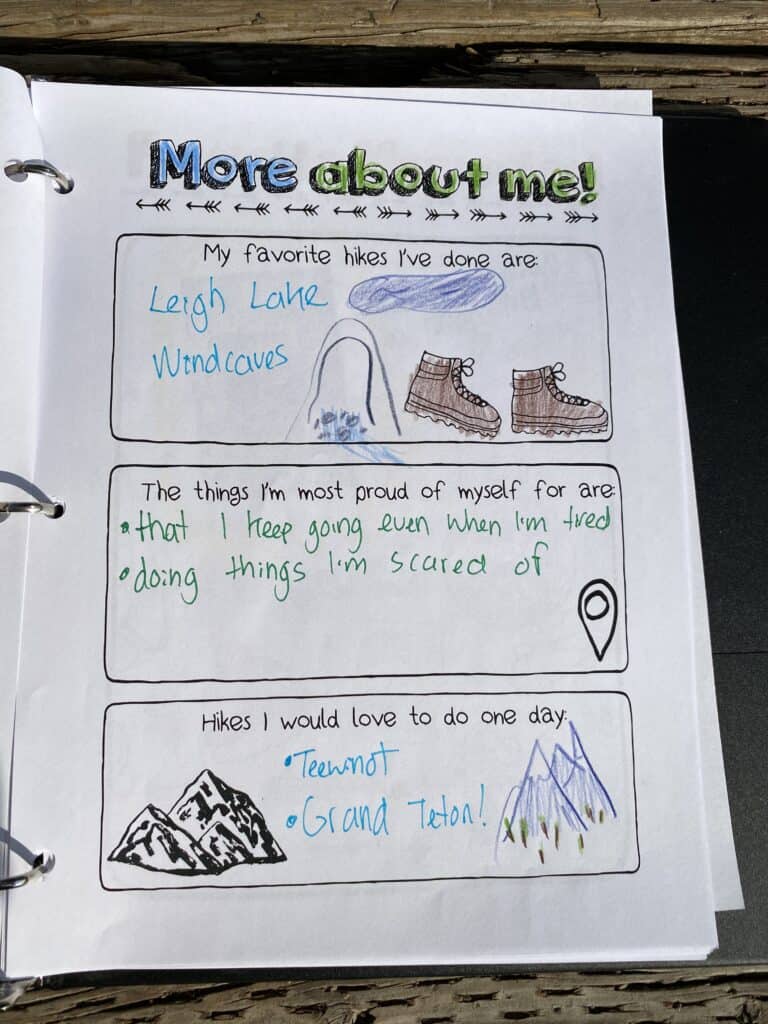 More about me!
My favorite hikes I've done are:
Leigh Lake
Windcaves
The things I'm most proud of myself for are:
• that I keep going even when I'm tired
• doing things I'm scared of
Hikes I would love to do one day:
• Teewinot
• Grand Teton!